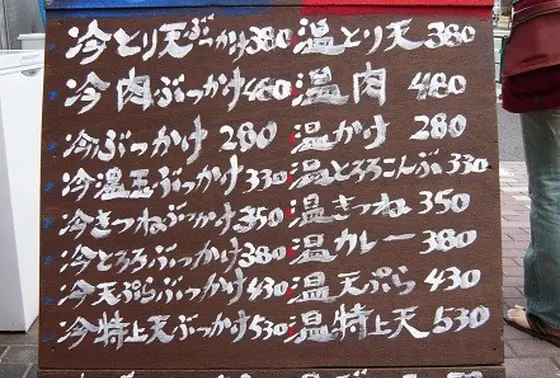 冷とり天ぶっかけ380 温とり天 380
冷肉ぶっかけ480 温肉 480
冷ぶっかけ 280 温かけ 280
冷温玉ぶっかけ330 温とろろこんぶ 330
冷きつねぶっかけ350 温きつね 350
冷とろろぶっかけ380 温カレー 380
冷天ぷらぶっかけ430 温天ぷら 430
冷特上天ぶっかけ530 温特上天 530